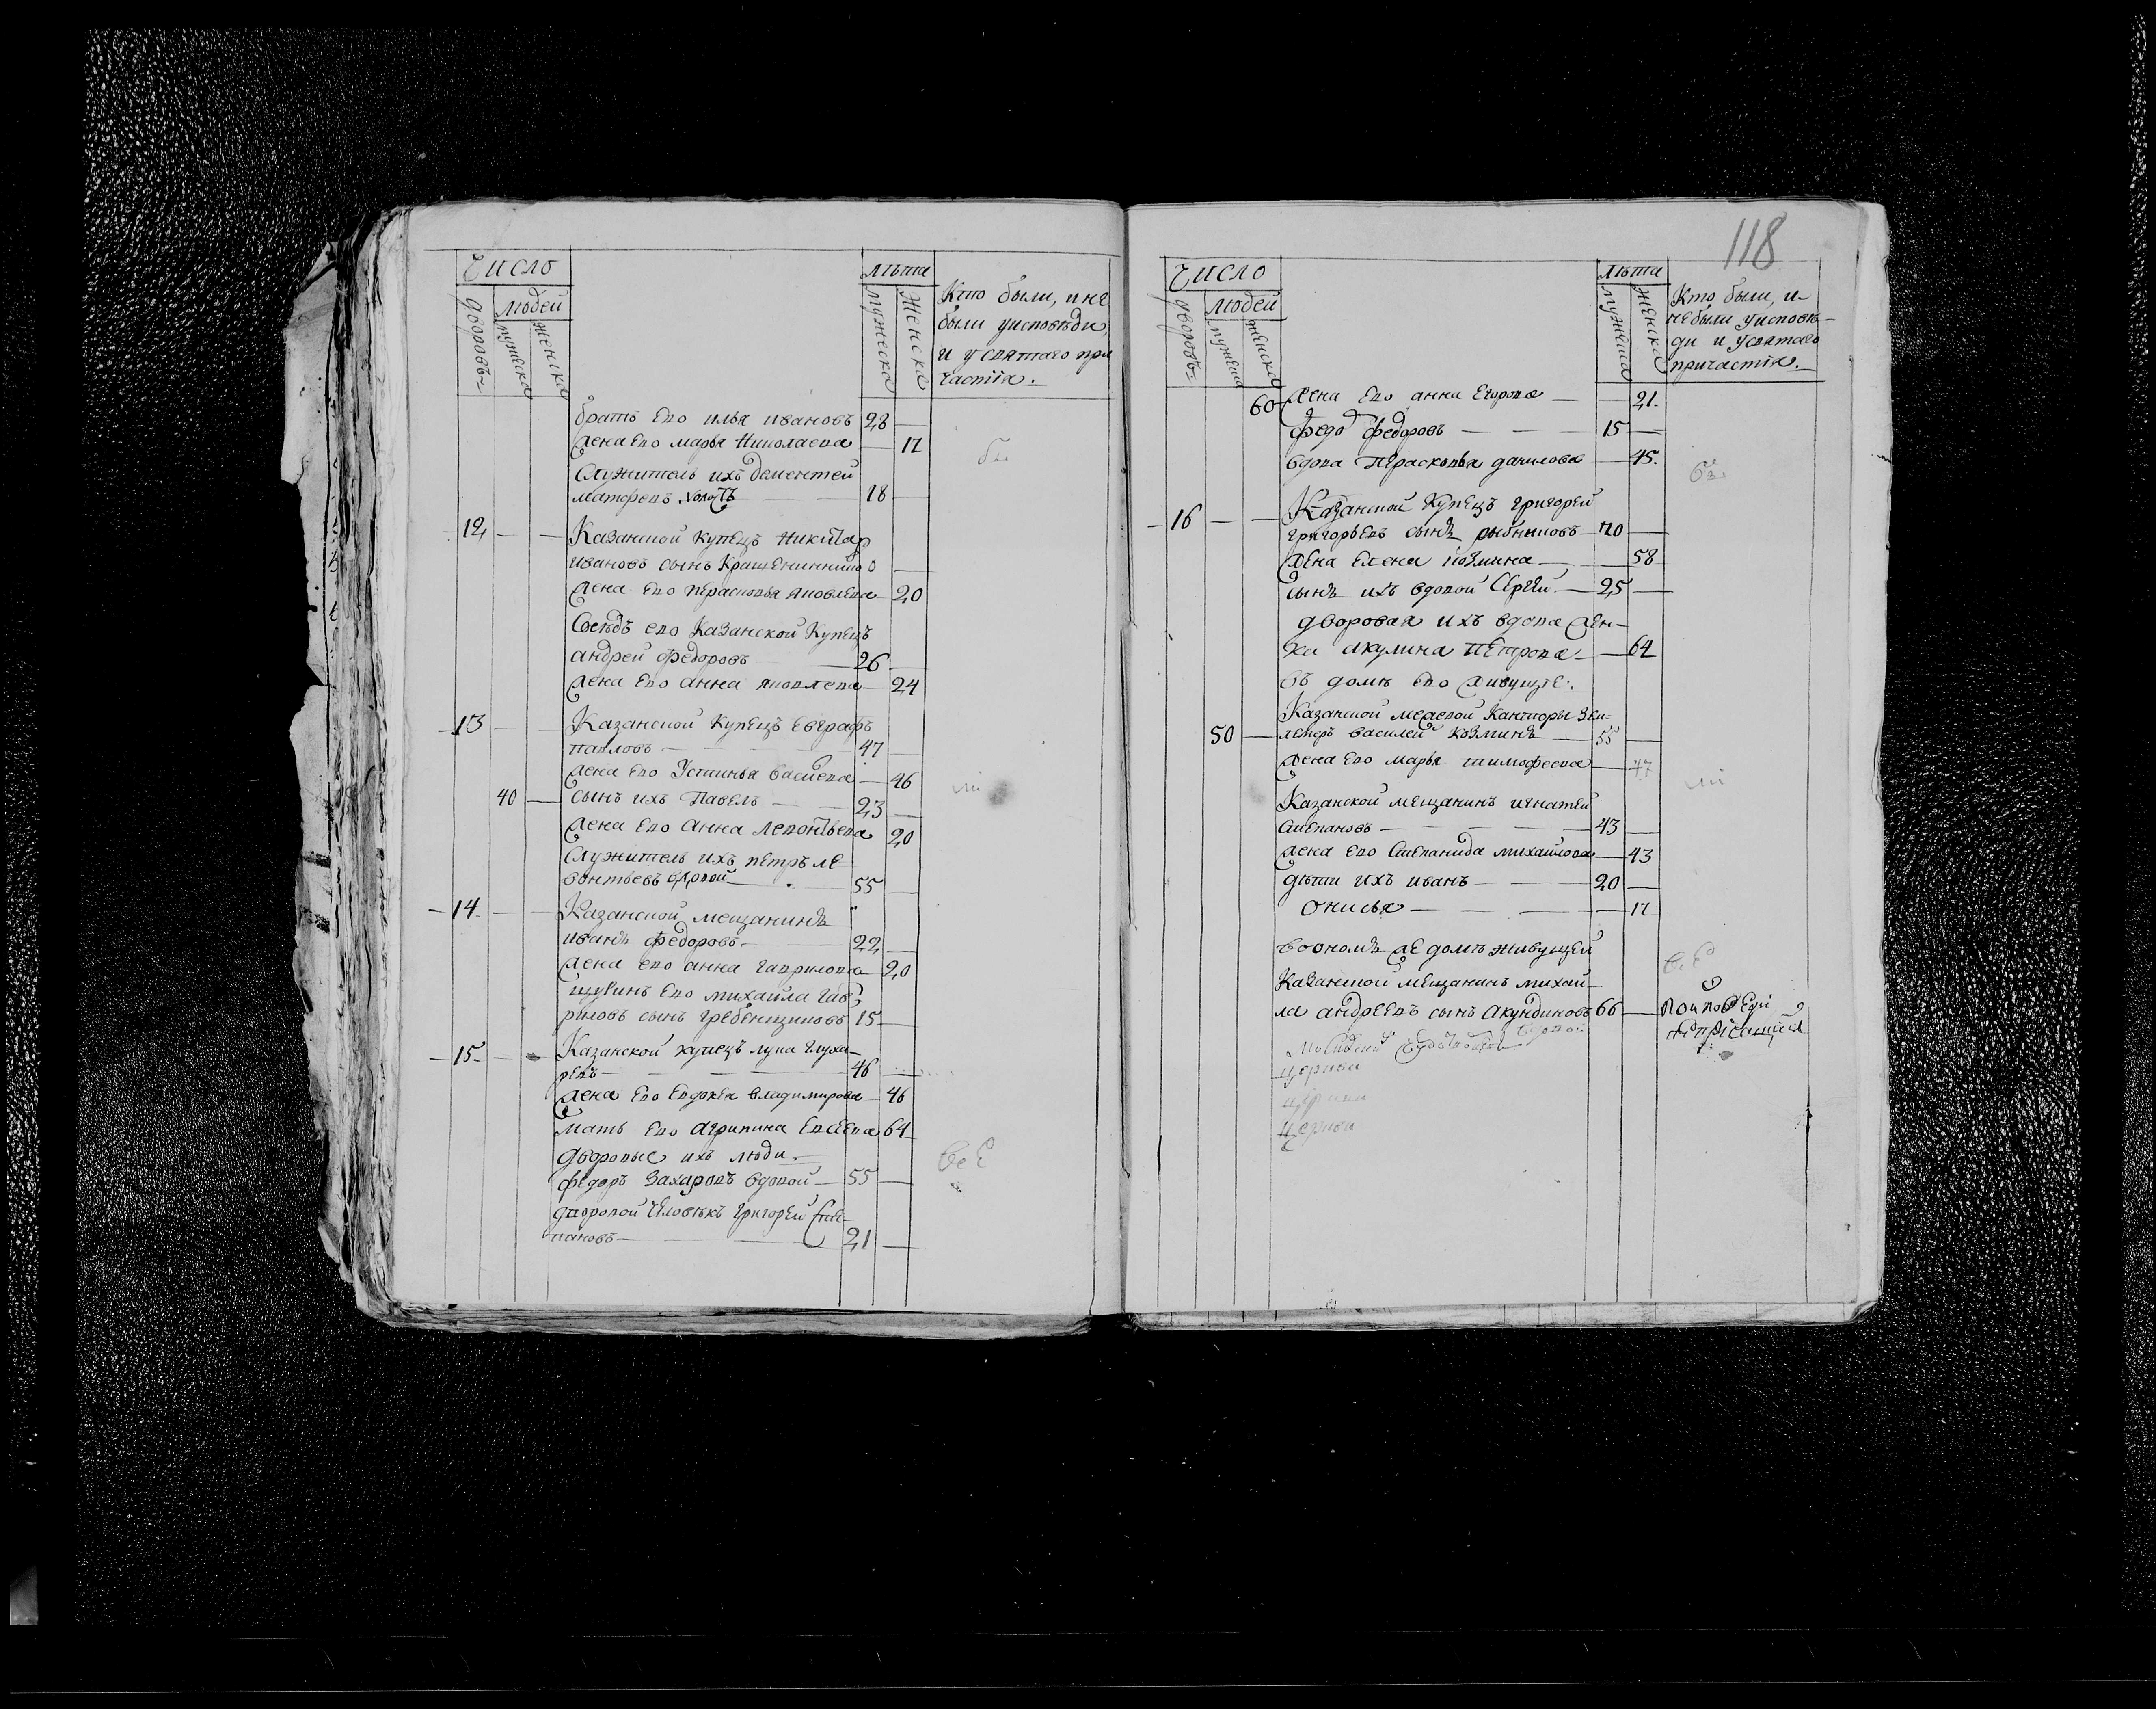 Число
людей
дворовъ
мужеска
женска
лѣта
мужеска
женска
Кто были, и не
были уисповѣди,
и усвятаго при
частїя.
братъ ево илья ивановъ 28
жена ево марья Николаева 17
Служитель ихъ дементей
матфеевъ холостъ 18
12 Казанской купецъ Никита
ивановъ сынъ Крашениннико
жена ево перасковья яковлева 20
Соседъ ево Казанской Купецъ
андрей Федоровъ 26
жена ево анна яковлева 24
13 Казанской купецъ Евграфъ
павловъ 47
жена ево Устинья 46
40 сынъ ихъ Павелъ 23
жена ево анна леонтьева 20
Служитель ихъ петръ ле
вонтьевъ вдовой 55
14 Казанской мещанинъ
иванъ федоровъ 22
жена ево анна гаврилова 20
шуринъ ево михайла гав
риловъ сынъ гребенщиковъ 15
15 Казанской купецъ лука глуха
ревъ 46
жена ево Евдокея владимирова 46
мать ево агрипина 64
дворовые ихъ люди
федоръ захаровъ вдовой 55
дворовой человѣкъ григорей сте
пановъ 21
все
118
Число
людей
дворовъ
мужеска
женска
лѣта
мужеска
женска
Кто были, и
небыли уисповѣ
ди и усвятаго
причастїя.
60 жена ево анна Егорова 21
федо федоровъ 15
вдова Перасковья данилова 45
16 Казанской Купецъ григорей
григорьевъ сынъ рыбниковъ 70
жена елена козмина 58
сынъ ихъ вдовой Сергей 25
дворовая ихъ вдова жен
ка акулина Петрова 64
въ домѣ ево живущїе
Казанской межевой Канторы зем
50 лемеръ василей козминъ 55
жена ево марья тимофеева 47
Казанской мещанинъ игнатей
степановъ 43
жена ево степанида михайлова 43
дѣти ихъ иванъ 20
онисья 17
воономъ же домѣ живущей
Казанской мещанинъ михай
ла андреевъ сынъ акундиновъ 66
вдовой
церкви
церкви
церкви
все